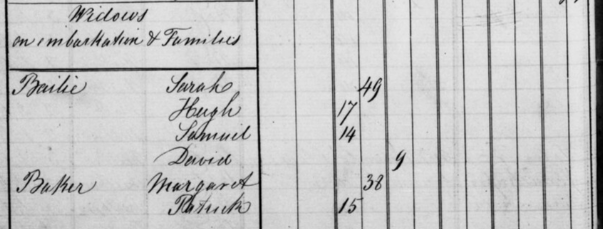 Widows
on embarkation & Families
Bailie Sarah 49
Hugh 17
Samuel 14
David 9
Baker Margaret 38
Patrick 15